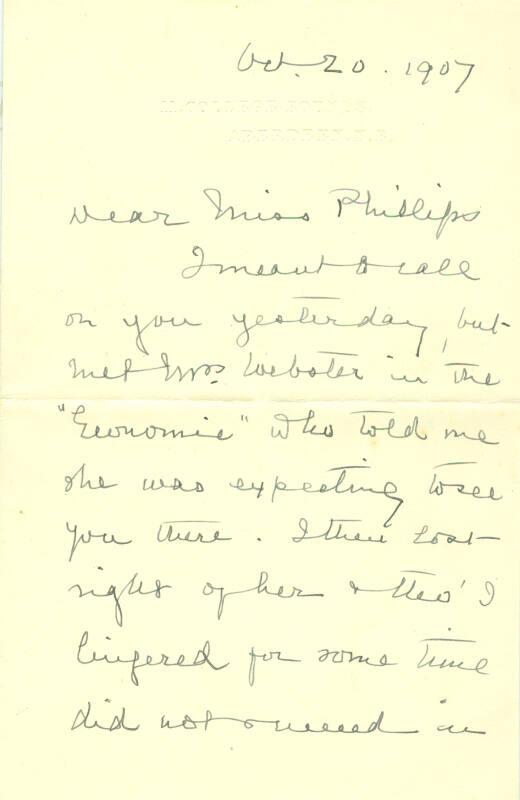 Oct. 20. 1907
COLLEGE BOUNDS.
ABERDEEN. N.B.
Dear Miss Phillips
I meant to call
on you yesterday, but
met Mrs Webster in the
"Economic" who told me
she was expecting to see
you there. I then lost
sight of her & tho' I
lingered for some time
did not succeed in